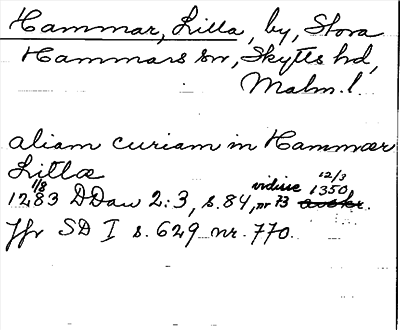 Hammar, Lilla, by, Stora
Hammars sn, Skytts hd,
Malm. l.
aliam curiam in Hammær
Litlæ
1/8 12/3
1283 DDan 2:3, s. 84, nr 73 vidisse 1350 avskr.
Jfr SD I s. 629 nr. 770.